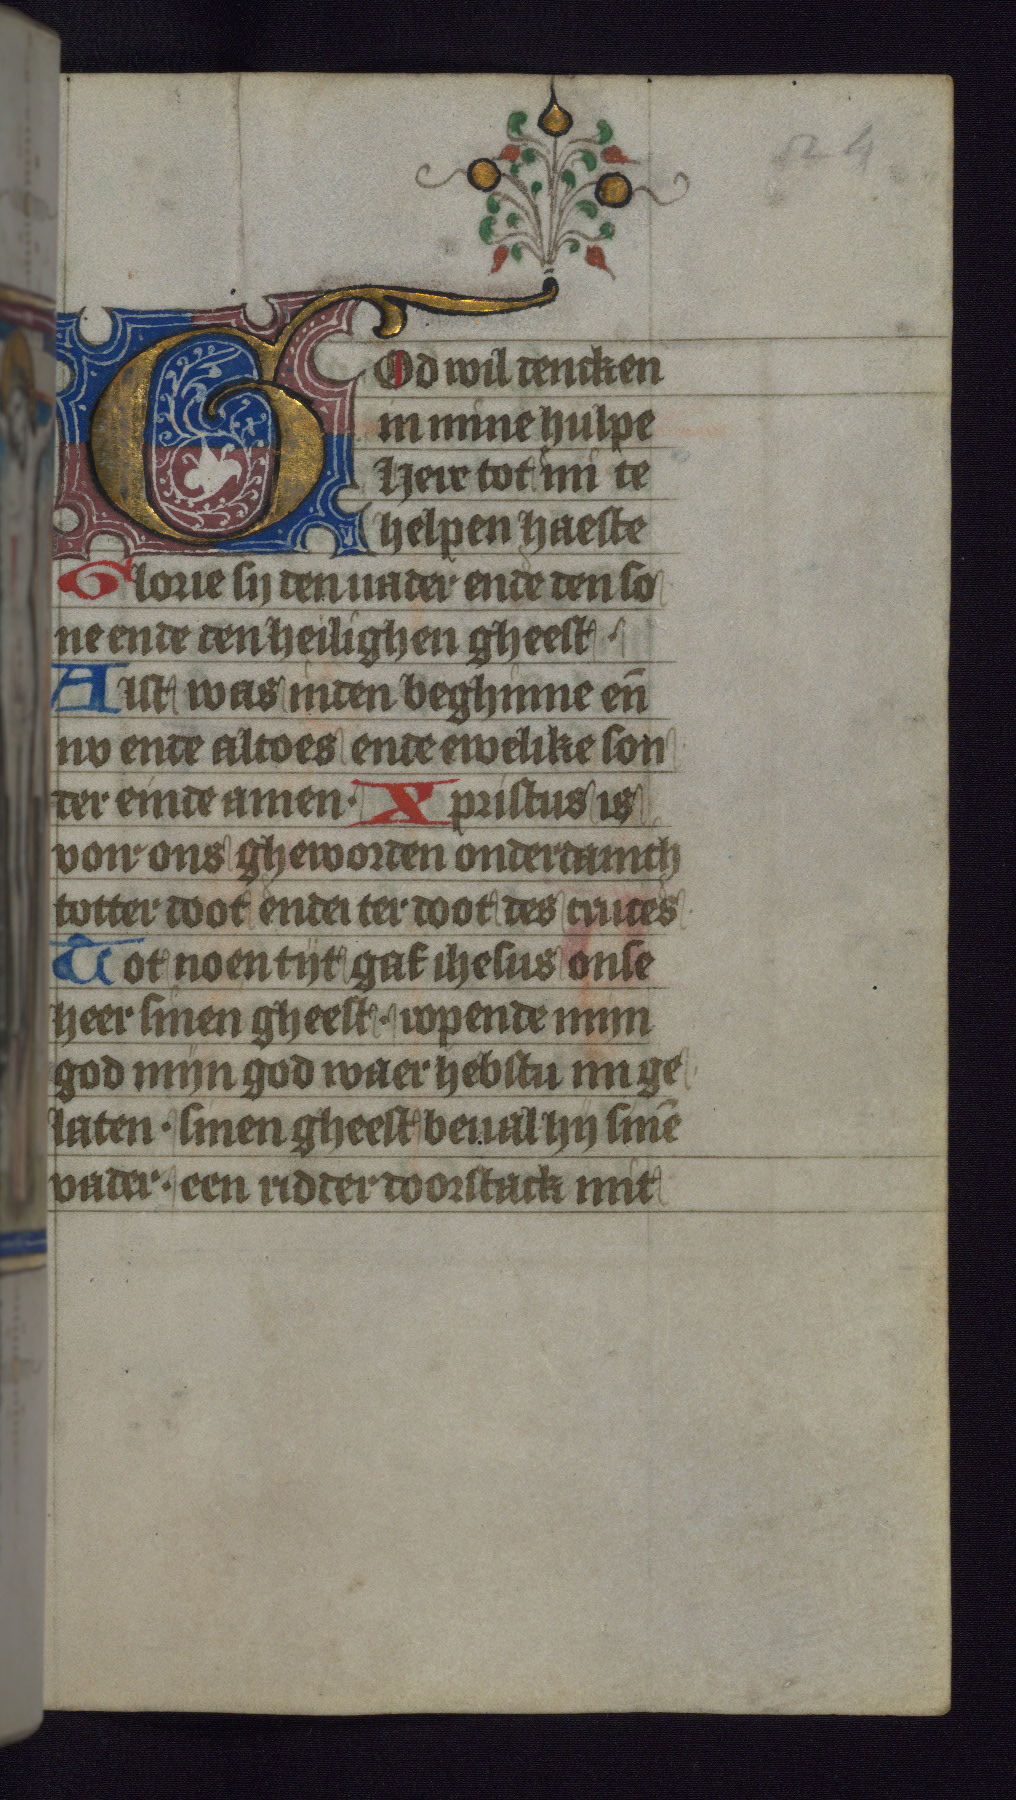 24
GOd wil dencken
in mine hulpe
Here tot mi te
helpen haeste
Glorie sij den uader ende den so
ne ende den heilighen gheest ·
Alst was inden beghinne en̄
nv ende altoes ende ewelike son
der einde amen · Xpristus is
voir ons gheworden onderdanich
totter doot ende ter doot des cruces
Tot noen tijt gaf ihesus onse
heer sinen gheest · wpende mijn
god mijn god waer hebstu mi ge
laten · sinen gheest beual hij sinē
vader · een ridder doorstack mit